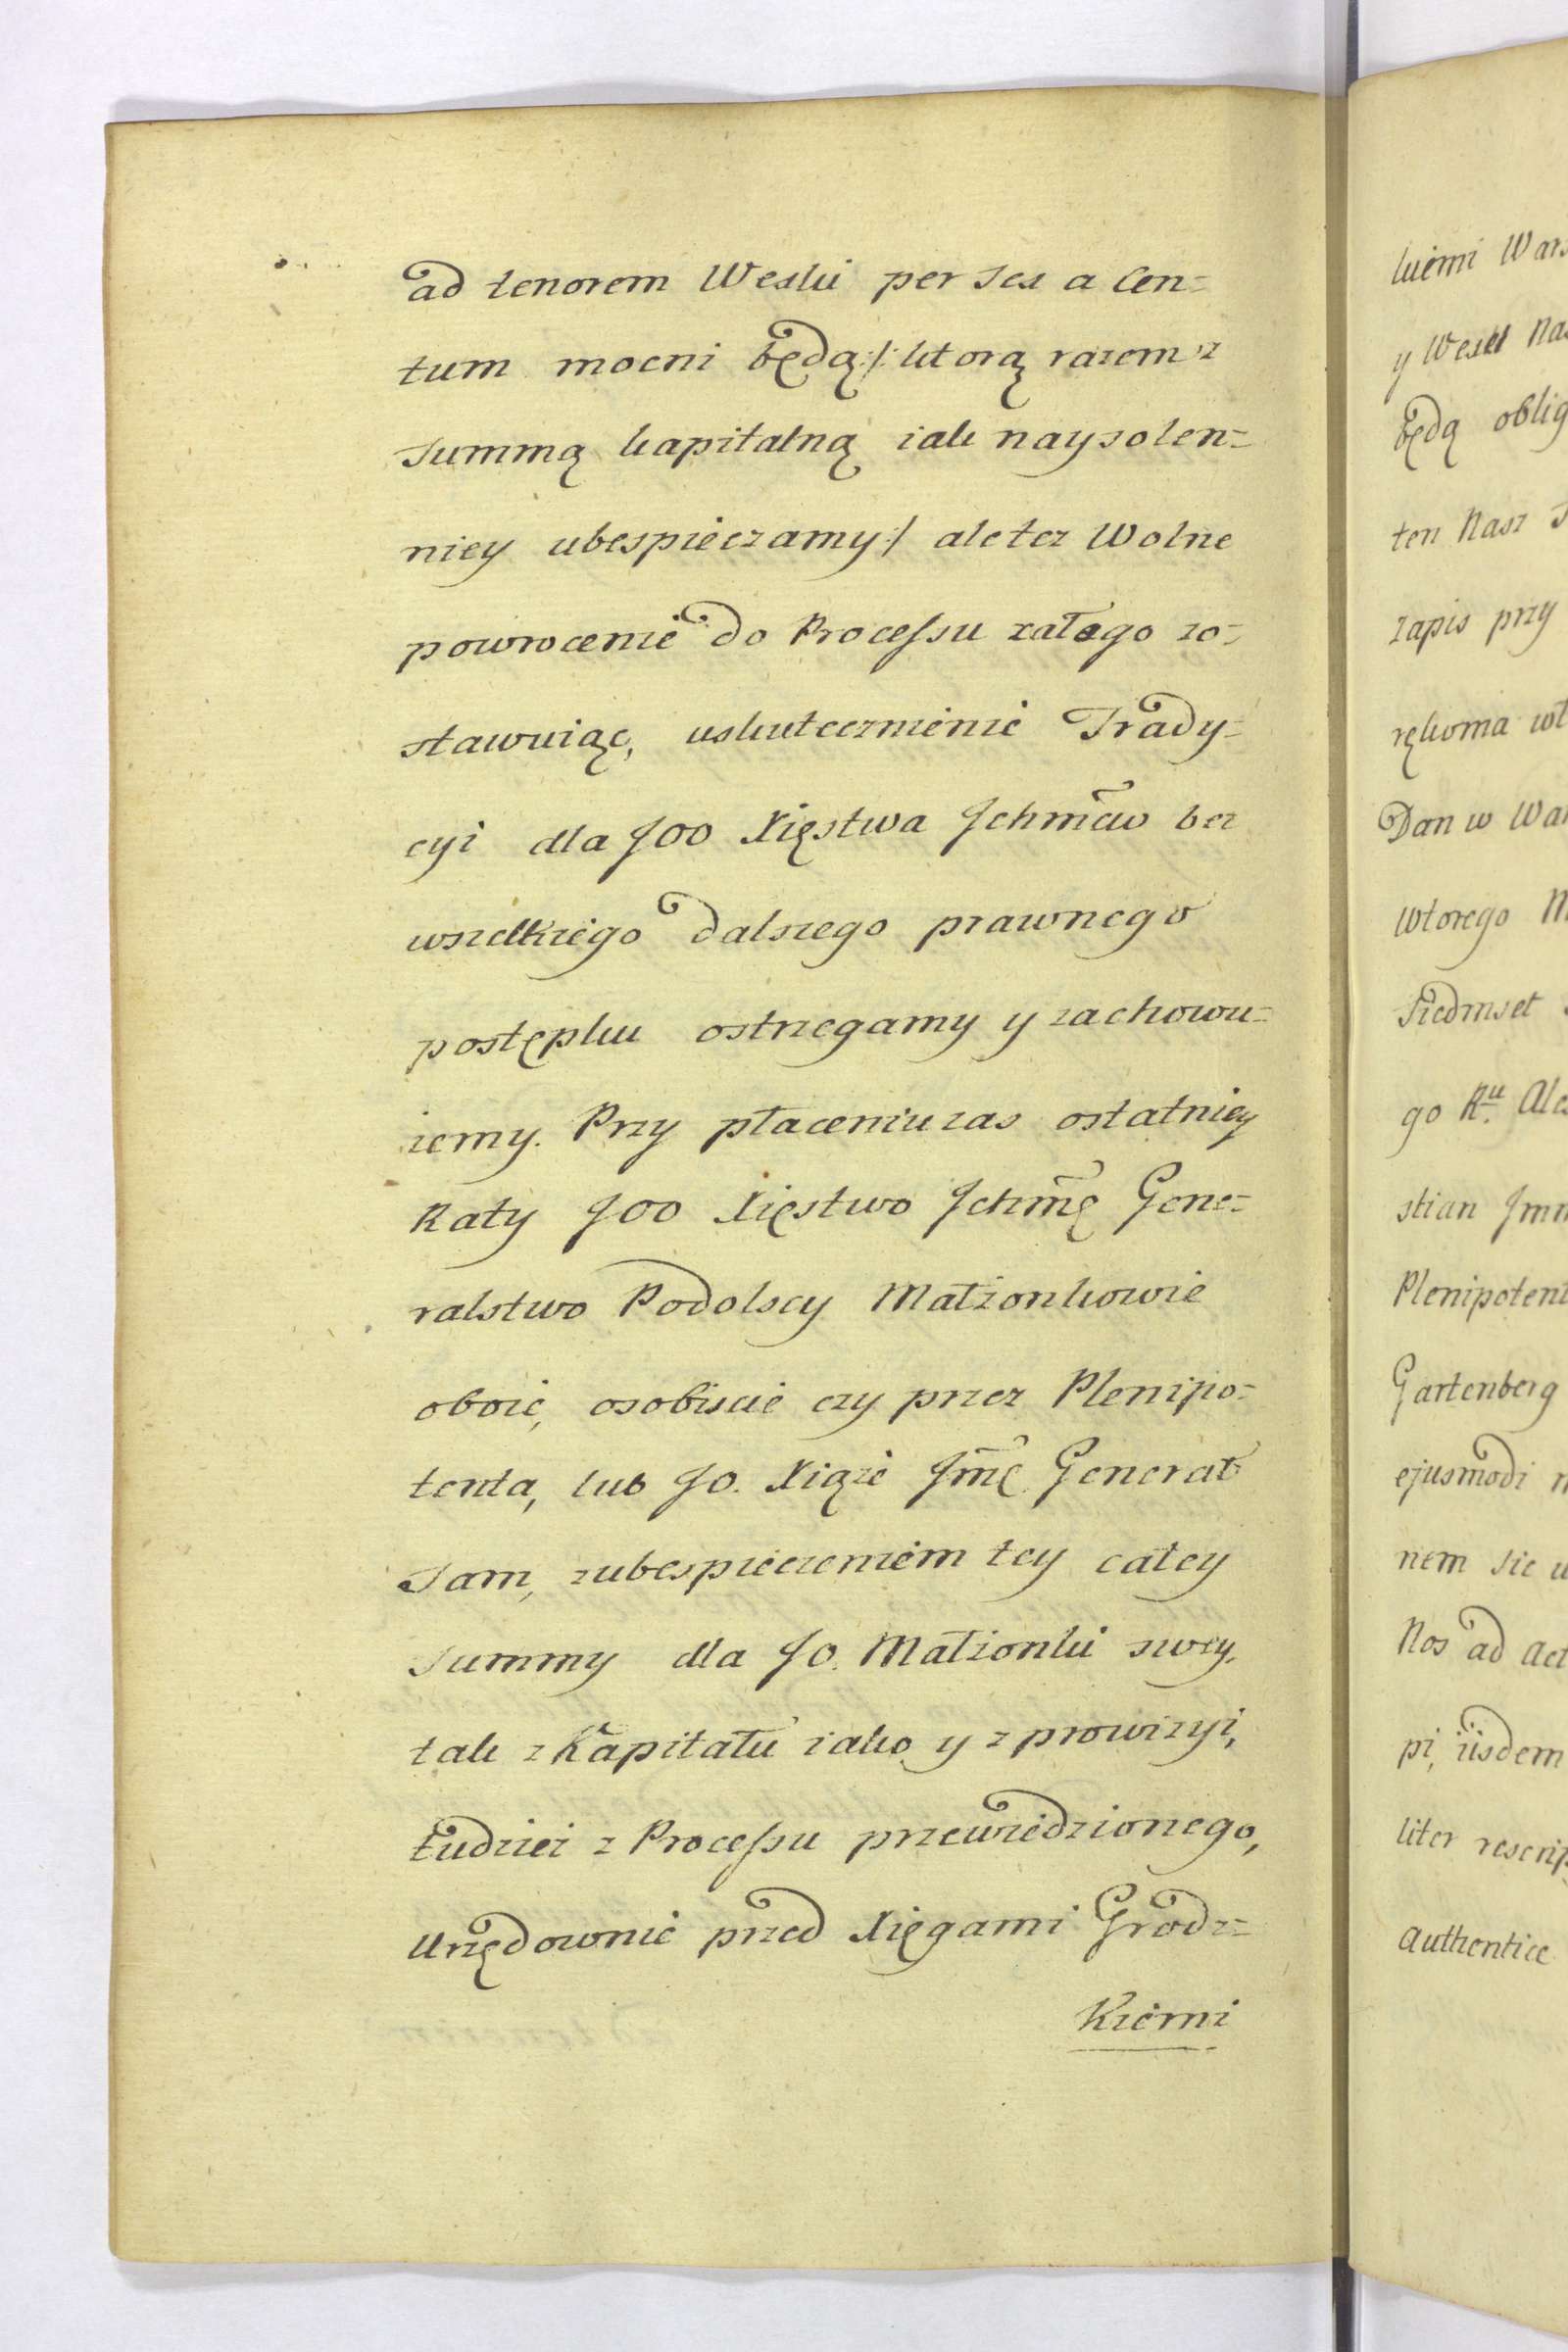 ad tenorem Wexlu per sex a Cen=
tum mocni będą:/: ktorą razem z
Summą kapitalną iak naysolen=
niey ubespieczamy:/ aletez Wolne
powrocenie do Processu całego zo=
stawuiąc, uskutecznienie Trady=
cyi dla JOO Xięstwa Ichmciow bez
wszelkiego dalszego prawnego
postępku ostrzegamy y zachowu=
iemy. Przy płaceniu zas ostatniey
Raty JOO Xięstwo Ichmę Gene=
ralstwo Podolscy Małzonkowie
oboie, osobiscie czy przez Plenipo=
tenta, lub JO. Xiąze Jmę Generał
Sam, zubespieczeniem tey całey
Summy dla JO. Małzonki swey,
tak z Kapitału iako y z prowizyi,
tudziez z Processu przewiedzionego,
Urzędownie przed Xięgami Grodz=
kiemi
kiemi Wars
y Wexel Nas
będą oblig
ten Nasz
zapis przy
rękoma wł
Dan w War
wtorego M
Siedmset
go Ru Ale
stian Imm
Plenipotent
Gartenberg
ejusmodi
nem sic u
Nos ad Act
pi, iisdem
liter rescrip
authentice